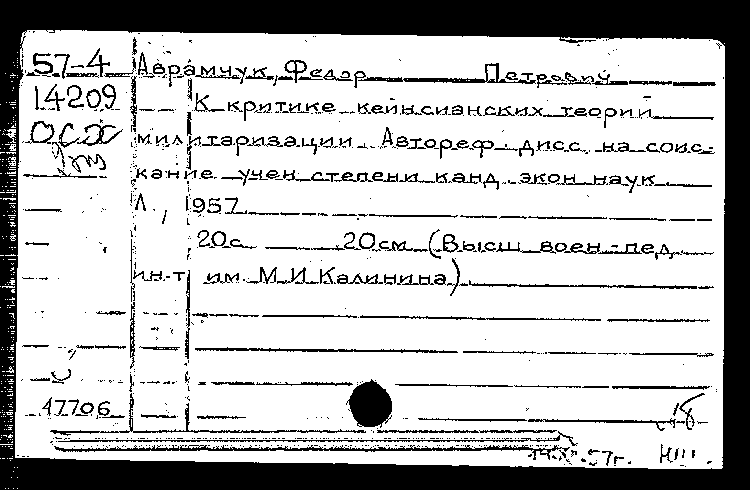 57-4 Аврамчук, Федор Петрович
14209 К критике кейнсианских теорий
ОСХ милитаризации. Автореф. дисс. на соис-
кание учен. степени канд. экон. наук.
Л., 1957.
20с. 20см. (Высш. воен.-пед.
ин-т им. М.И.Калинина).
17706
57г. НШ.